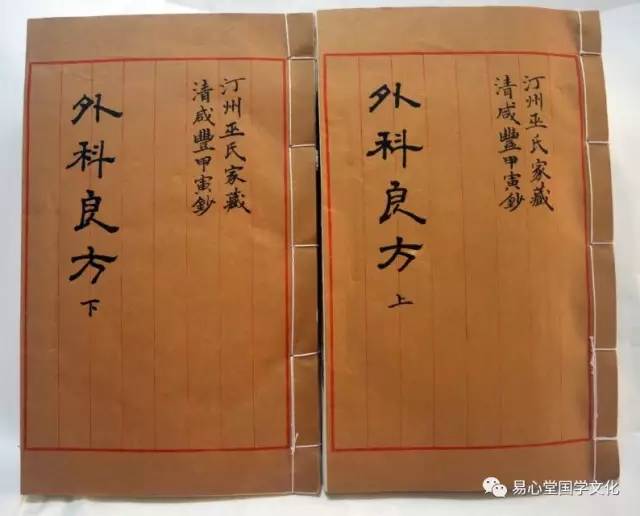 汀州巫氏家藏
清咸豐甲寅鈔
外科良方
上
汀州巫氏家藏
清咸豐甲寅鈔
外科良方
下
易心堂国学文化